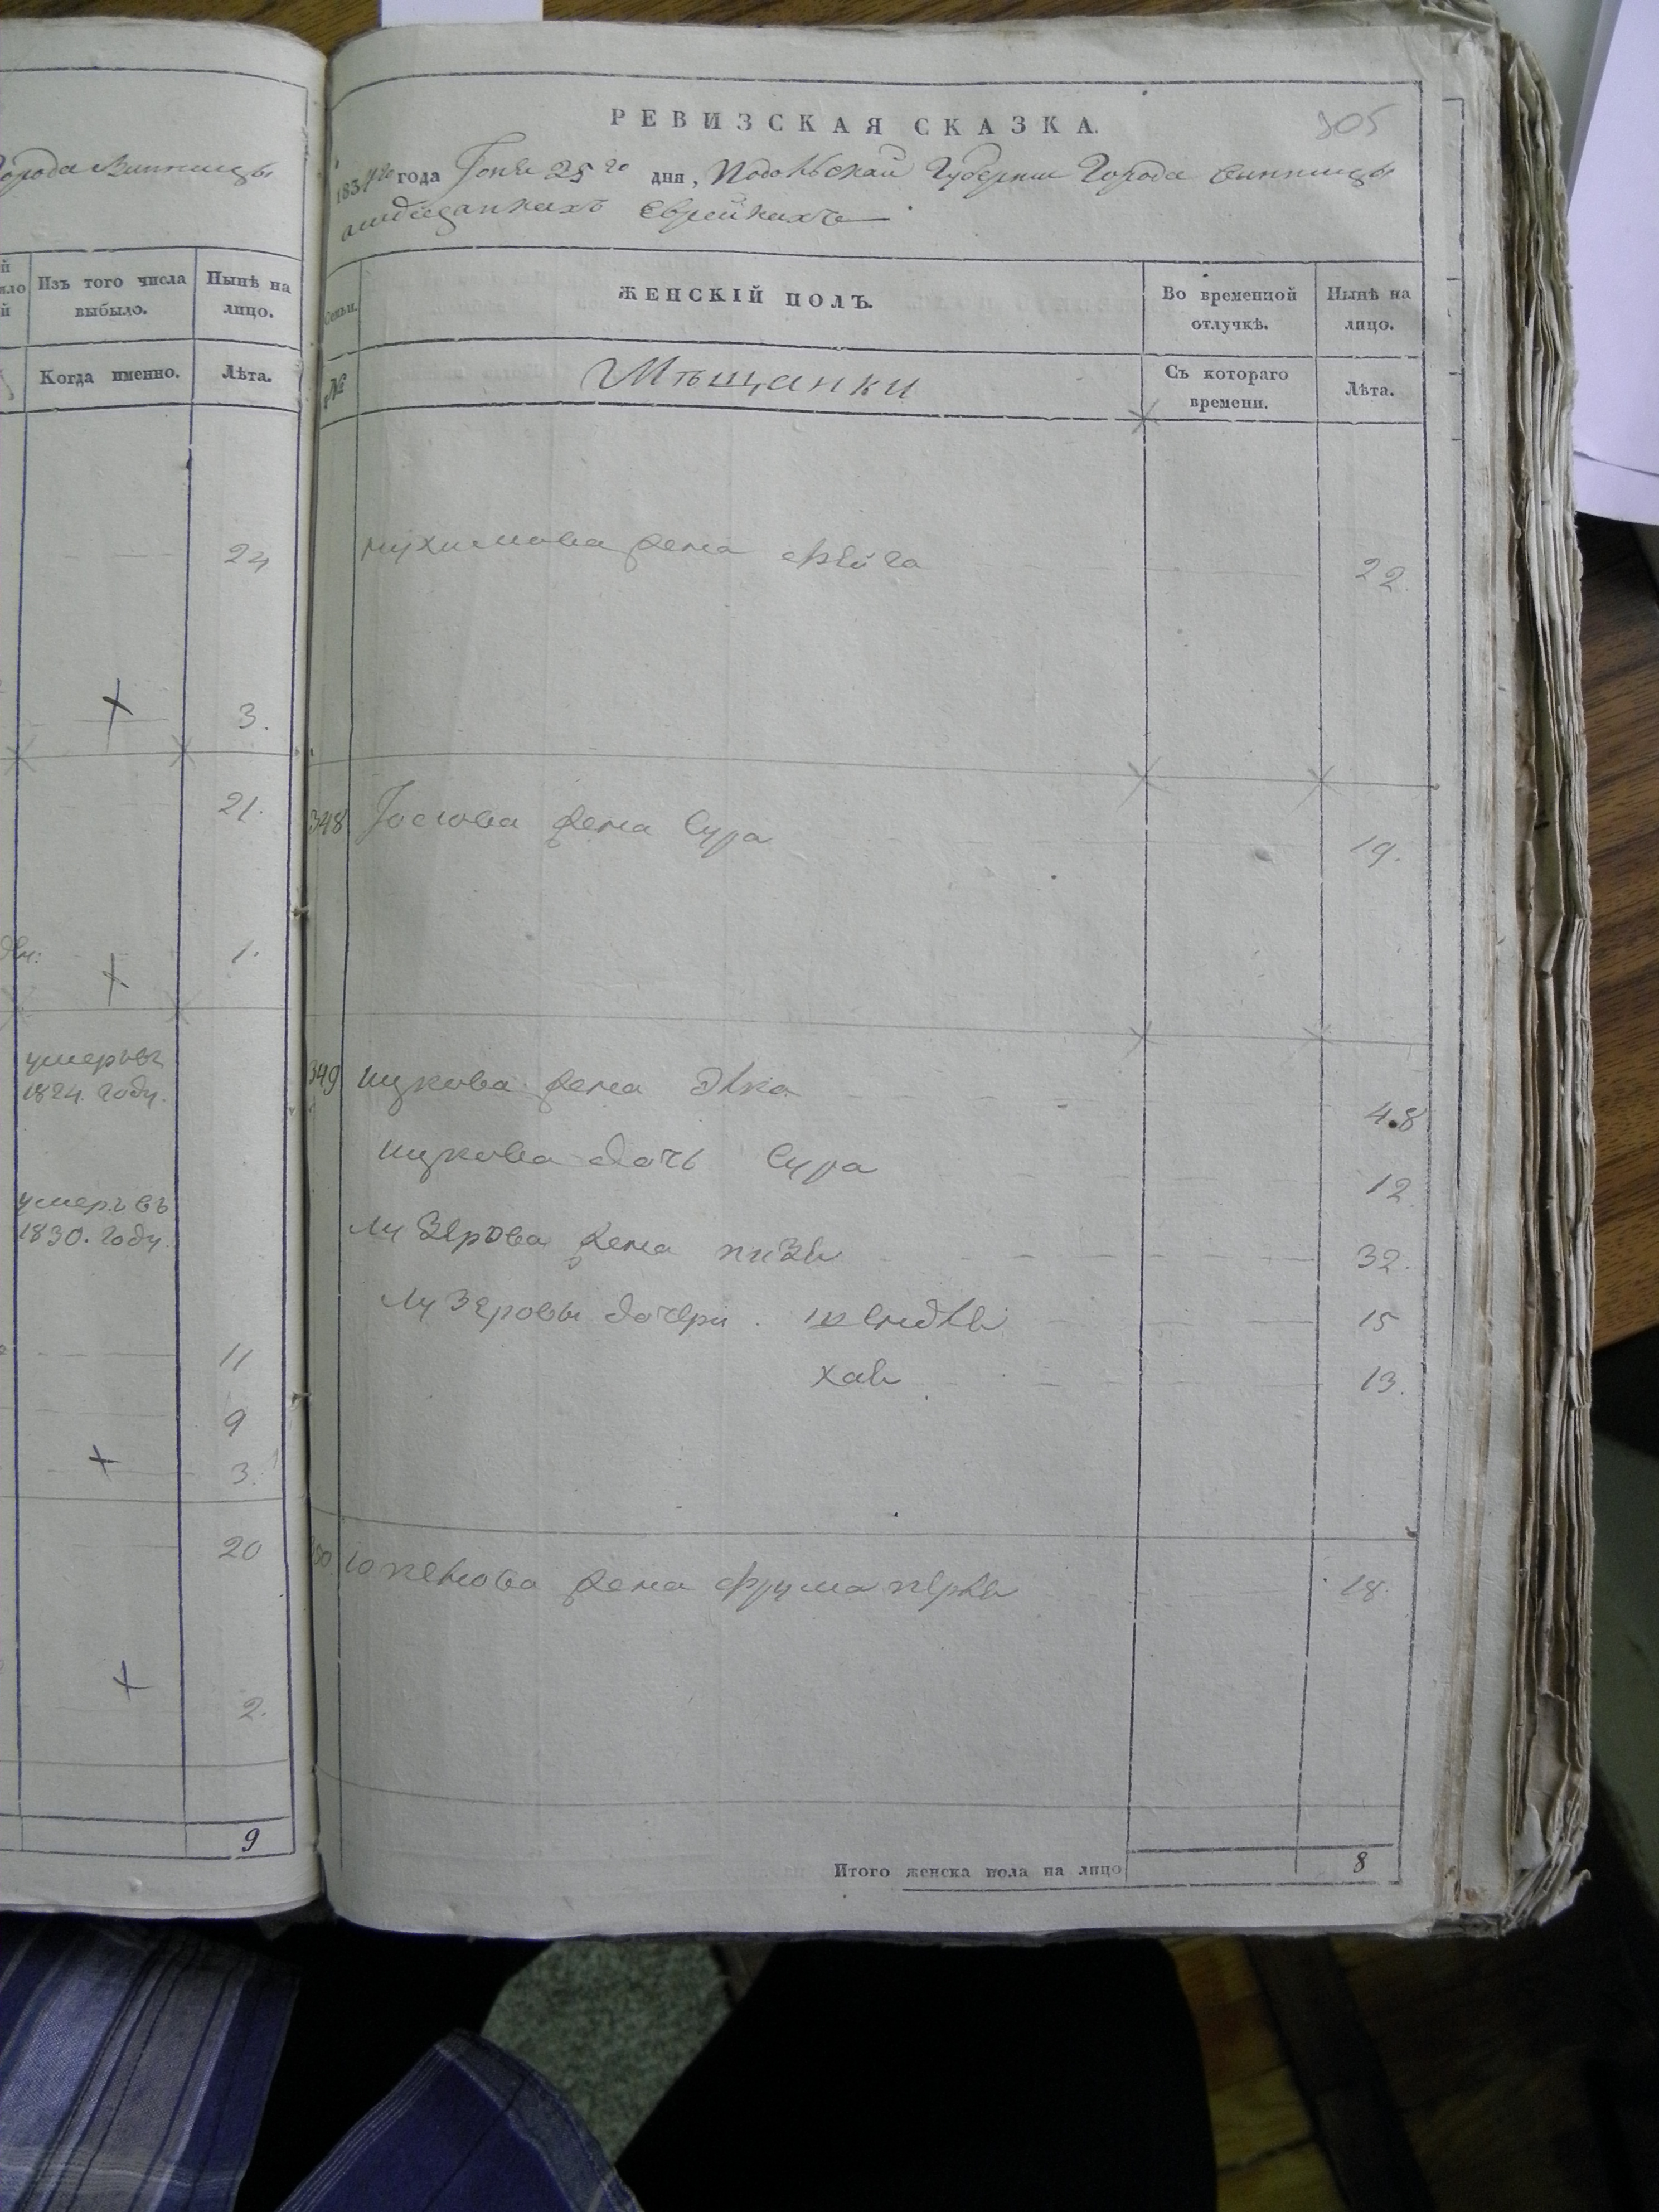 города Винницы
Изъ того числа выбыло.
Нынѣ на лицо.
Когда именно.
Лѣта.
24
3.
21.
1.
умеръ въ
1824. году.
умеръ въ
1830. году.
11
9
3.
20
2.
9
РЕВИЗСКАЯ СКАЗКА.
305
1834го года Іюня 25го дня, Подольской Губернии Города Винницы
Еврейкахъ
Семьи.
ЖЕНСКІЙ ПОЛЪ.
Во временной отлучкѣ.
Нынѣ на лицо.
№
Мѣщанки
Съ котораго времени.
Лѣта.
Нухимова жена Фейга 22.
348 Іосиова жена Сура 19.
349 Ицкова жена Элка 48
Ицкова дочь Сура 12
Лузерова жена 32.
Лузеровы дочери 15
Хая 13.
350 жена Фрума 18.
Итого женска пола на лицо 8